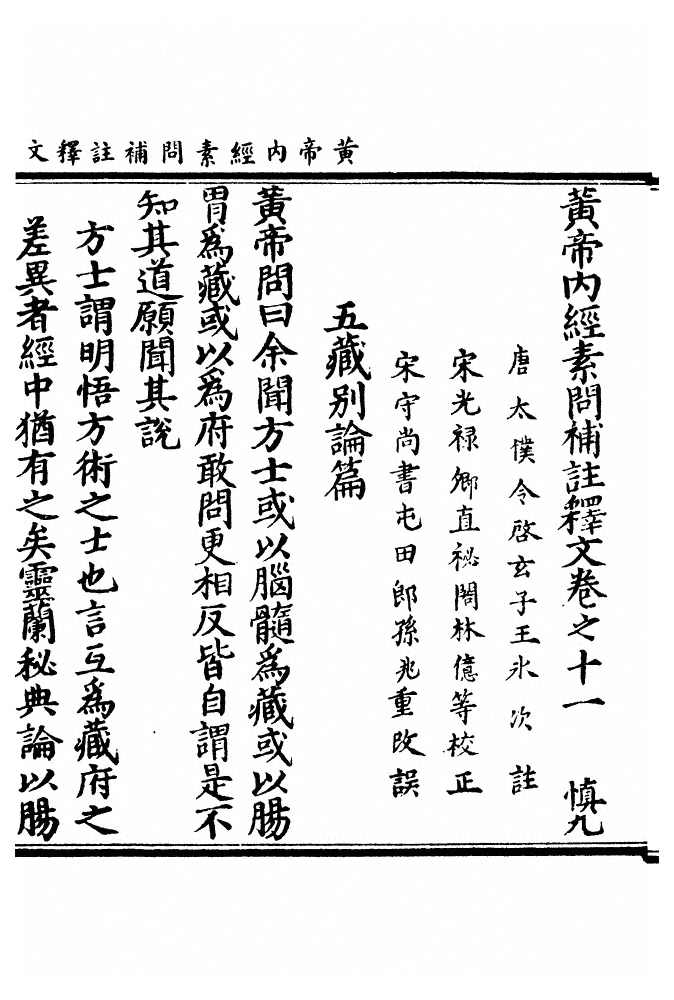 黃帝内經素問補註釋文
黃帝内經素問補註釋文卷之十一 慎九
唐太僕令啓玄子王氷次註
宋光禄卿直祕閣林億等校正
宋守尚書屯田郎孫兆重改誤
五藏别論篇
黃帝問曰余聞方士或以腦髓爲藏或以腸
胃爲藏或以爲府敢問更相反皆自謂是不
知其道願聞其説
方士謂明悟方術之士也言互爲藏府之
差異者經中猶有之矣靈蘭秘典論以腸